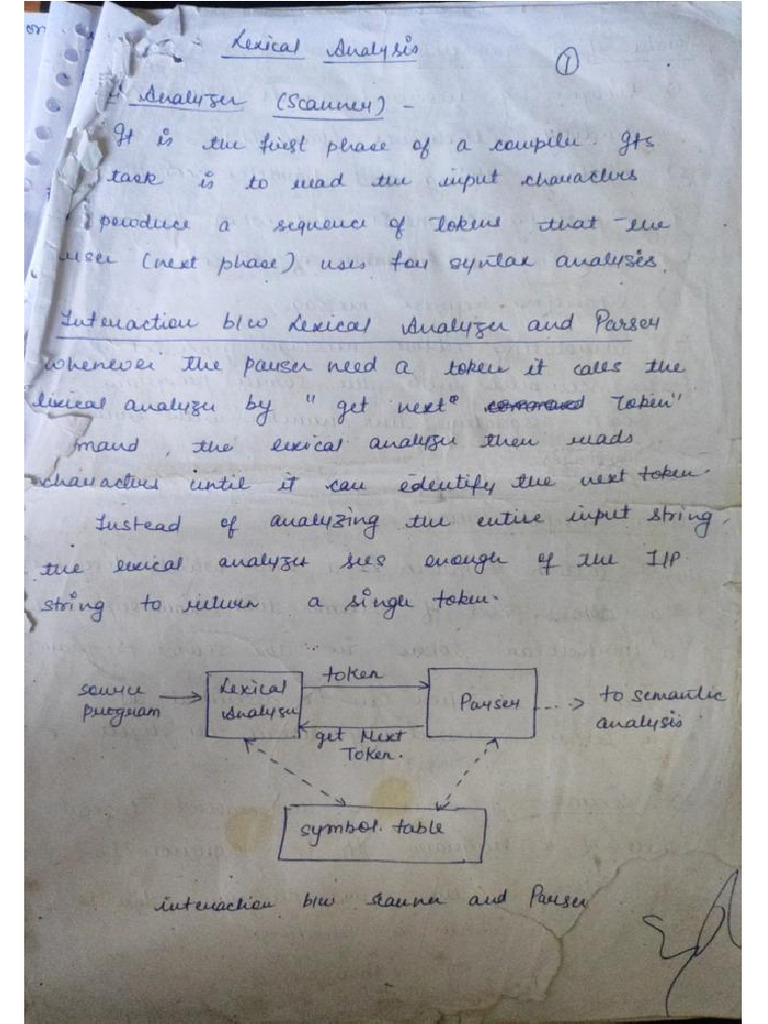 Lexical Analysis
①
Analyzer (Scanner) -
It is the first phase of a compiler. Its
task is to read the input characters
produce a sequence of tokens that the
user (next phase) uses for syntax analyses.
Interaction b/w Lexical Analyzer and Parser
whenever the parser need a token it calls the
lexical analyzer by " get next Token"
mand, the lexical analyzer then reads
characters until it can edentify the next token.
Instead of analyzing the entire input string,
the lexical analyzer sees enough of the I/P
string to return a single token.
source program
Lexical Analyzer
token
Parser
to semantic analysis
get Next Token.
symbol. table
interaction b/w scanner and Parser